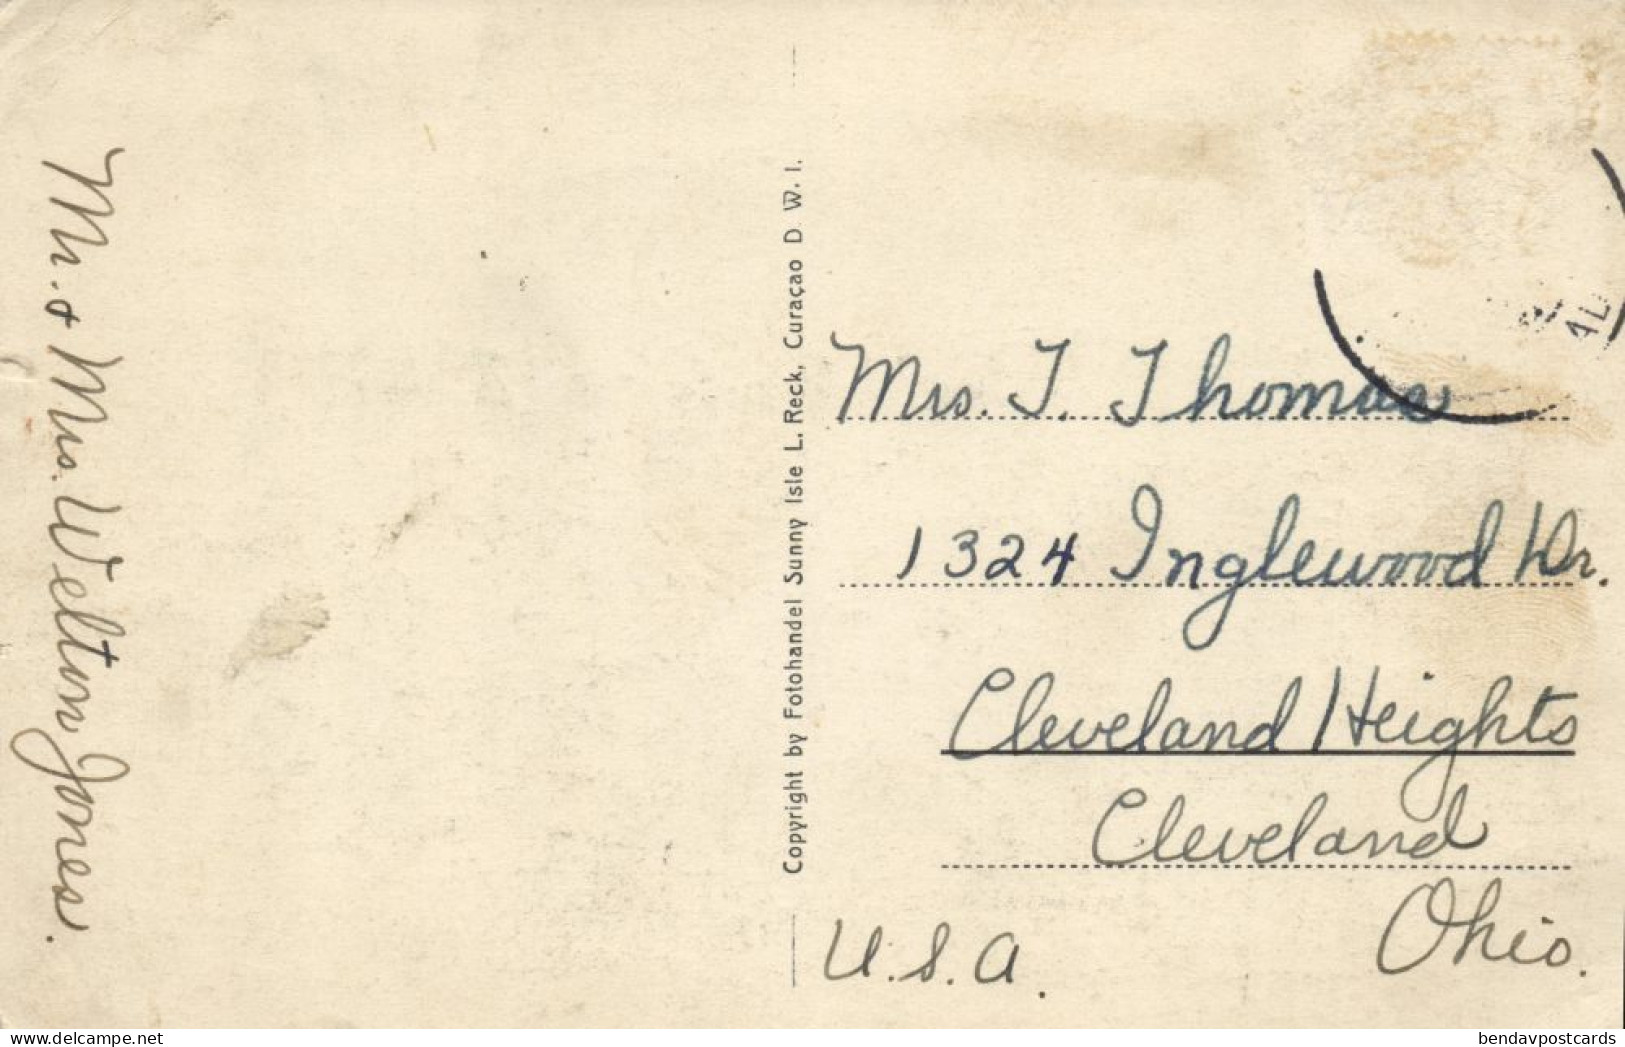 Mr. & Mrs. Welton Jones.
Copyright by Fotohandel Sunny Isle L. Reck, Curaçao D. W. I.
Mrs. T. Thomas
1324 Inglewood Dr.
Cleveland Heights
Cleveland
Ohio.
U.S.A.
the-world-collectors.com
bendavpostcards